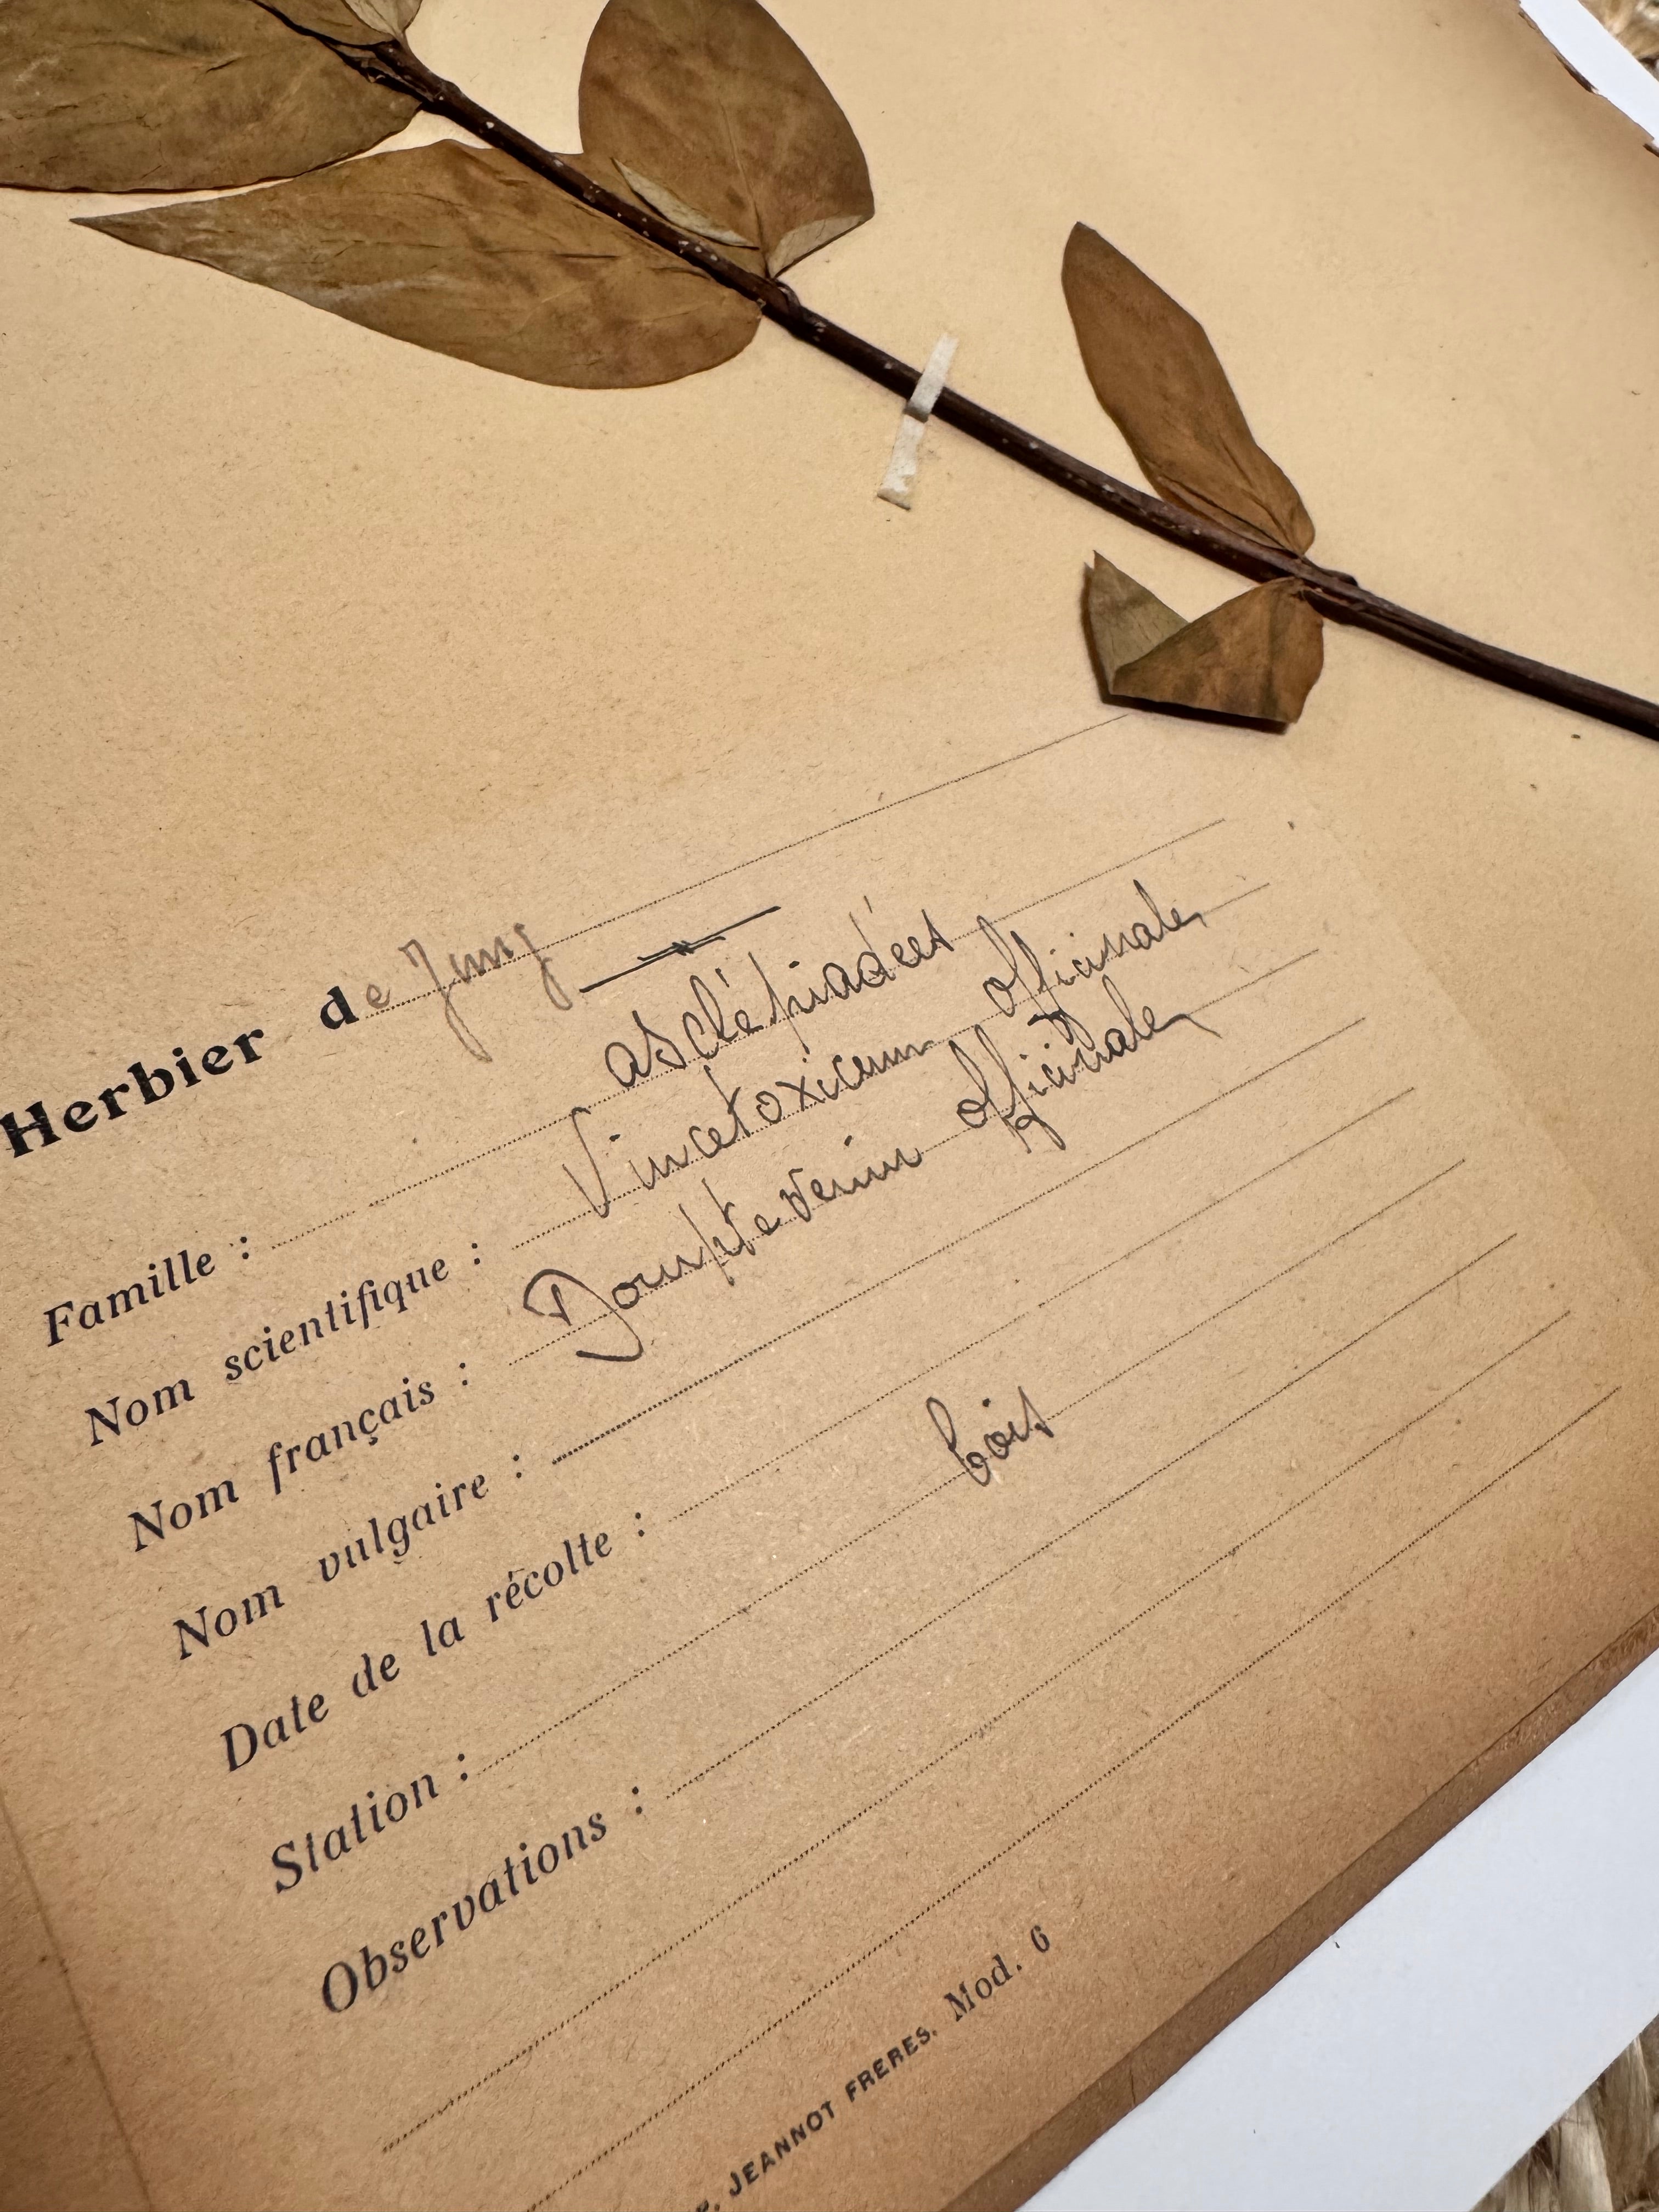 Herbier de Jung
Famille : asclépiadées
Nom scientifique : Vincetoxicum officinale
Nom français : Dompte venin officinale
Nom vulgaire :
Date de la récolte :
Station : bois
Observations :
JEANNOT FRERES. Mod. 6